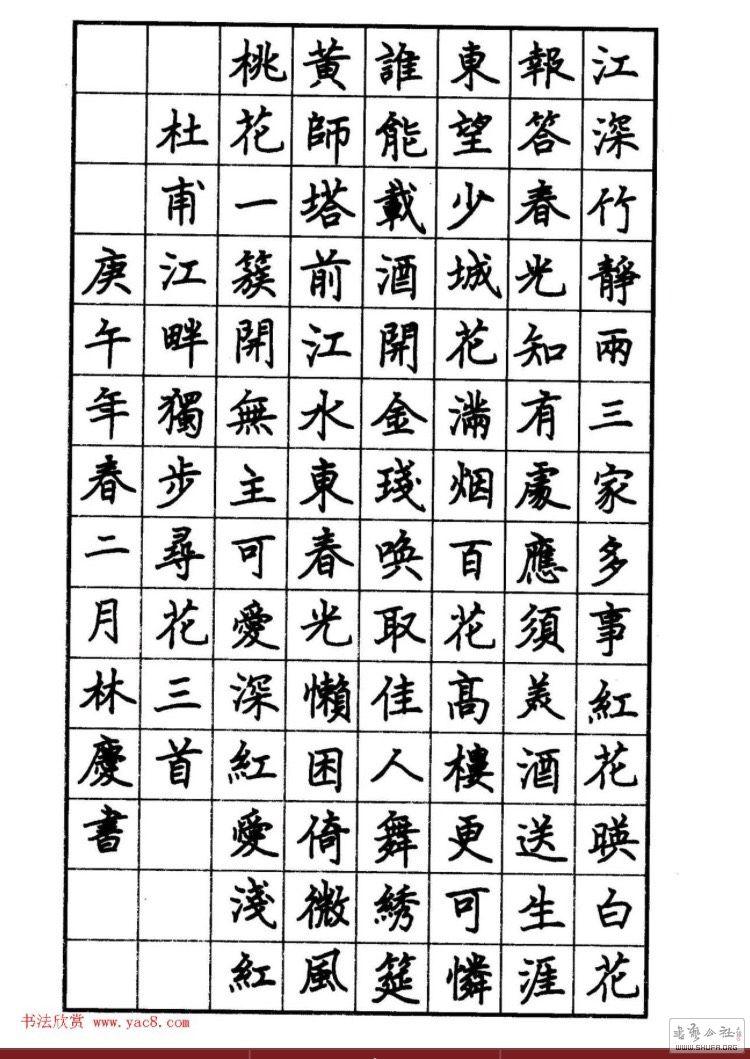 江深竹靜兩三家多事紅花暎白花
報答春光知有處應須美酒送生涯
東望少城花滿烟百花高樓更可憐
誰能載酒開金琖喚取佳人舞綉筵
黃師塔前江水東春光懶困倚微風
桃花一簇開無主可愛深紅愛淺紅
杜甫江畔獨步尋花三首
庚午年春二月林慶書
书法欣赏 www.yac8.com
WWW.SHUFA.ORG